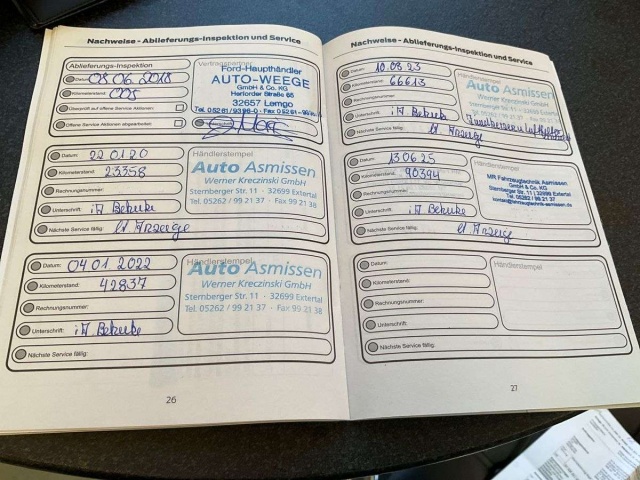 Nachweise - Ablieferungs-Inspektion und Service
Ablieferungs-Inspektion
Datum: 08.06.2018
Kilometerstand: 005
Überprüft auf offene Service Aktionen:
Offene Service Aktionen abgearbeitet:
Vertragspartner
Ford-Haupthändler
AUTO-WEEGE
GmbH & Co. KG
Herforder Straße 65
32657 Lemgo
Datum: 22 01 20
Kilometerstand: 23358
Rechnungsnummer:
Unterschrift: i.A.
Nächste Service fällig: Anzeige
Händlerstempel
Auto Asmissen
Werner Kreczinski GmbH
Sternberger Str. 11 · 32699 Extertal
Tel. 05262 / 99 21 37 · Fax 99 21 38
Datum: 04 01 2022
Kilometerstand: 42837
Rechnungsnummer:
Unterschrift: i.A.
Nächste Service fällig:
Händlerstempel
Auto Asmissen
Werner Kreczinski GmbH
Sternberger Str. 11 · 32699 Extertal
Tel. 05262 / 99 21 37 · Fax 99 21 38
26
Nachweise - Ablieferungs-Inspektion und Service
Datum: 10.08.23
Kilometerstand: 66613
Rechnungsnummer:
Unterschrift: i.A.
Nächste Service fällig: Anzeige
Händlerstempel
Auto Asmissen
Werner Kreczinski GmbH
Sternberger Str. 11 · 32699 Extertal
Datum: 13 06 25
Kilometerstand: 90394
Rechnungsnummer:
Unterschrift: i.A.
Nächste Service fällig: Anzeige
Händlerstempel
MR Fahrzeugtechnik Asmissen
GmbH & Co. KG
Sternberger Str. 11 | 32699 Extertal
Tel. 05262 / 99 21 37
Datum:
Kilometerstand:
Rechnungsnummer:
Unterschrift:
Nächste Service fällig:
Händlerstempel
27